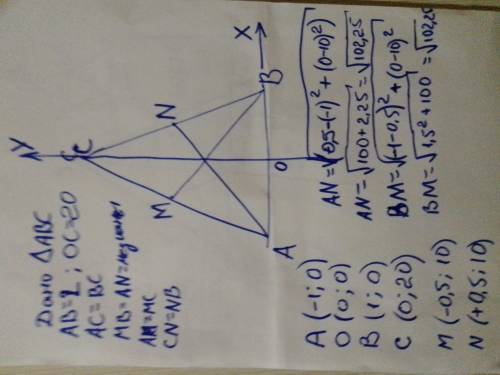 Дано △ABC
AB=2; OC=20
AC=BC
MB=AN=медианы
AM=MC
CN=NB
Y
C
N
M
B
X
A
O
A (-1; 0)
O (0; 0)
B (1; 0)
C (0; 20)
M (-0,5; 10)
N (+0,5; 10)
AN=√(0,5-(-1)²+(0-10)²)
AN=√100+2,25=√102,25
BM=√(-1-0,5)²+(0-10)²
BM=√1,5²+100=√102,25